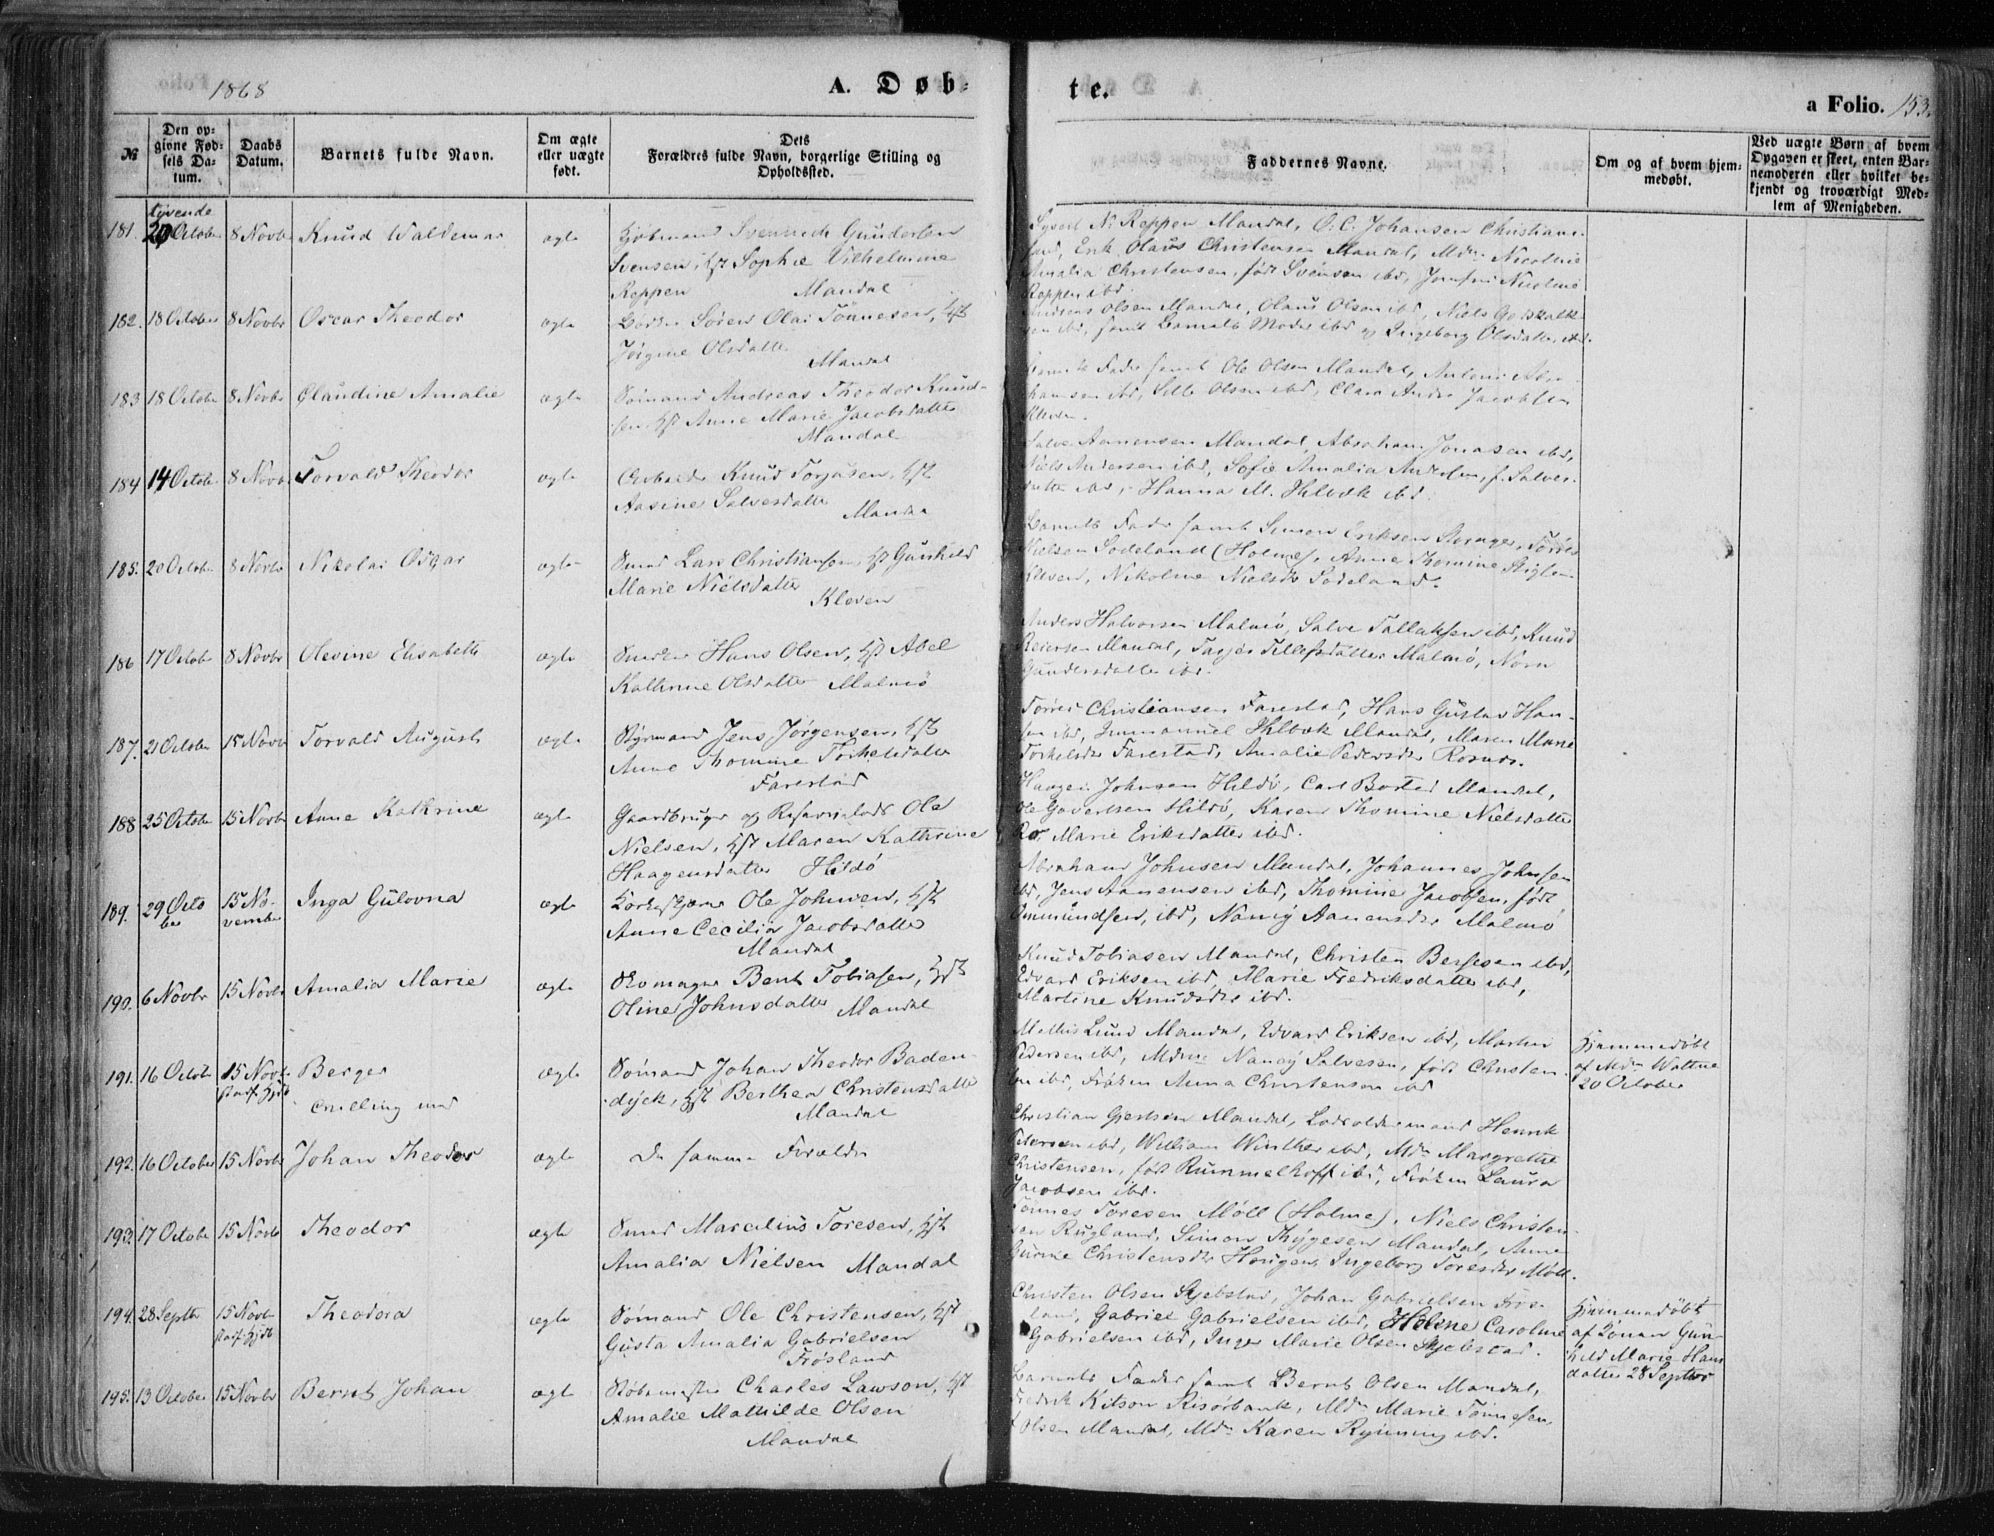 1868
A. Døb-
te.
a Folio. 153.
№
Den op-
givne Fød-
sels Da-
tum.
Daabs
Datum.
Barnets fulde Navn.
Om ægte
eller uægte
født.
Dets
Forældres fulde Navn, borgerlige Stilling og
Opholdssted.
Faddernes Navne.
Om og af hvem hjem-
medøbt.
Ved uægte Børn af hvem
Opgaven er skeet, enten Bar-
nemoderen eller hvilket be-
kjendt og troværdigt Med-
lem af Menigheden.
tyvende
181. 20 Octob 8 Novb Knud Waldemar ægte Kjøbmand Svennich Gundersen
Svensen, Hst Sophie Vilhelmine
Reppen Mandal
Syvert N. Reppen Mandal, O. C. Johansen Christian-
sand, Erik Olaus Christensen Mandal, Mdm Nicoline
Amalia Christensen, født Svensen ibd, Jomfru Nicoline
Reppen ibd.
182. 18 October 8 Novbr Oscar Theodor ægte Søren Olai Tønnesen, Hst
Jørgine Olsdatter
Mandal
Andreas Olsen Mandal, Olaus Olsen ibd, Niels Godskalk-
sen ibd, samt Barnets Moder ibd og Ingeborg Olsdatter ibd.
183 18 Octobr 8 Novbr Claudine Amalie ægte Sømand Andreas Theodor Knud-
sen, Hst Anne Marie Jacobsdatter
Mandal
Barnets Fader samt Ole Olsen Mandal, Antoni Abra-
hamsen ibd, Olsen ibd, Clara Andr Jacobsen
Kleven.
184 14 Octob 8 Novb Torvald Theodor ægte Knud Torjusen, Hst
Aasine Salvesdatter
Mandal
Salve Aanensen Mandal, Abraham Jonasen ibd,
Niels Andersen ibd, Sofie Amalia Andersen, f. Salves-
datter ibd, Hanna M. Holbæk ibd.
185. 20 Octob 8 Novbr Nikolai Oscar ægte Smed Lars Christiansen, Hst Gunhild
Marie Nielsdatter
Kleven
Barnets Fader samt Simon Eriksen Torres
Nielsen Sodeland (Holme), Anne Thomine
Kleven, Nikoline Nielsdr Sodeland.
186 17 Octob 8 Novbr Olevine Elisabeth ægte Hans Olsen, Hst Abel
Kathrine Olsdatter Malmø
Anders Halvorsen Malmø, Salve Tallaksen ibd, Knud
Reiersen Mandal, Tarjer Tellefsdatter Malmø,
Gundersdatter ibd.
187. 21 October 15 Novb Torvald August ægte Styrmand Jens Jørgensen, Hst
Anne Thomine Torkelsdatter
Farestad
Torres Christiansen Farestad, Hans Gustav Han-
sen ibd, Immanuel Holbæk Mandal, Maren Marie
Torkelsdr Farestad, Amalie Pedersdr Rosnes.
188 25 Octobr 15 Novbr Anne Kathrine ægte Gaardbruger og Reservelods Ole
Nielsen, Hst Maren Kathrine
Haagensdatter Hildø
Haagen Johnsen Hildø, Carl Bosted Mandal,
Ole Govertsen Hildø, Karen Thomine Nielsdatter
Marie Eriksdatter ibd.
189. 29 Octo
ber 15 No-
vember Inga Gulovna ægte Korkeskjærer Ole Johnsen, Hst
Anne Cecilia Jacobsdatter
Mandal
Abraham Johnsen Mandal, Johannes Johnsen
ibd, Jens Aanensen ibd, Thomine Jacobsen, født
Ommundsen, ibd, Nancy Aanensdr Malmø
190. 6 Novbr 15 Novbr Amalia Marie ægte Skomager Bent Tobiasen, Hst
Oline Johnsdatter Mandal
Knud Tobiasen Mandal, Christen Bergesen ibd,
Edvard Eriksen ibd, Marie Fredriksdatter ibd,
Martine Knudsdr ibd.
191. 16 Octob 15 Novb
stadf. Hjdb Berger
Tvilling med ægte Sømand Johan Theodor Baden-
dyck, Hst Berthea Christensdatter
Mandal
Mathis Lund Mandal, Edvard Eriksen ibd, Martin
Pedersen ibd, Mdme Nancy Salvesen, født Christen-
sen ibd, Frøken Anna Christensen ibd
Hjemmedøbt
af Mdm Wattne
20 October
192. 16 October 15 Novbr Johan Theodor ægte De samme Forældre
Christian Gjertsen Mandal, Lodsoldermand Henrik
Petersen ibd, William Winther ibd, Mdm Margrethe
Christensen, født Rummelhoff ibd, Frøken Laura
Jacobsen ibd.
193. 17 October 15 Novb Theodor ægte Smed Marcelius Toresen, Hst
Amalia Nielsen Mandal
Tønnes Toresen Møll (Holme), Niels Christen-
sen Rugland, Simon Thygesen Mandal, Anne
Gurine Christensdr Haugen, Ingeborg Toresdr Møll.
194. 28 Septbr 15 Novbr
stadf. Hjdb Theodora ægte Sømand Ole Christensen, Hst
Gusta Amalia Gabrielsen
Frøsland
Christen Olsen Skjebstad, Johan Gabrielsen Frøs-
land, Gabriel Gabrielsen ibd, Helene Caroline
Gabrielsen ibd, Inger Marie Olsen Skjebstad.
Hjemmedøbt
af Konen Gun-
hild Marie Hans
datter 28 Septbr
195. 13 October 15 Novbr Bernt Johan ægte Støbemester Charles Lawson, Hst
Amalie Mathilde Olsen
Mandal
Barnets Fader samt Bernt Olsen Mandal,
Fredrik Kitson Risørbank, Mdm Marie Tønnesen,
f. Olsen Mandal, Mdm Karen Rynning ibd.